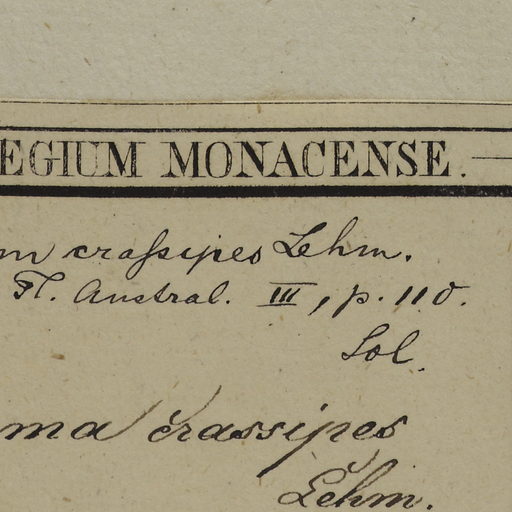 EGIUM MONACENSE.
m crassipes Lehm.
Fl. Austral. III, p. 110.
Sol.
ma crassipes
Lehm.